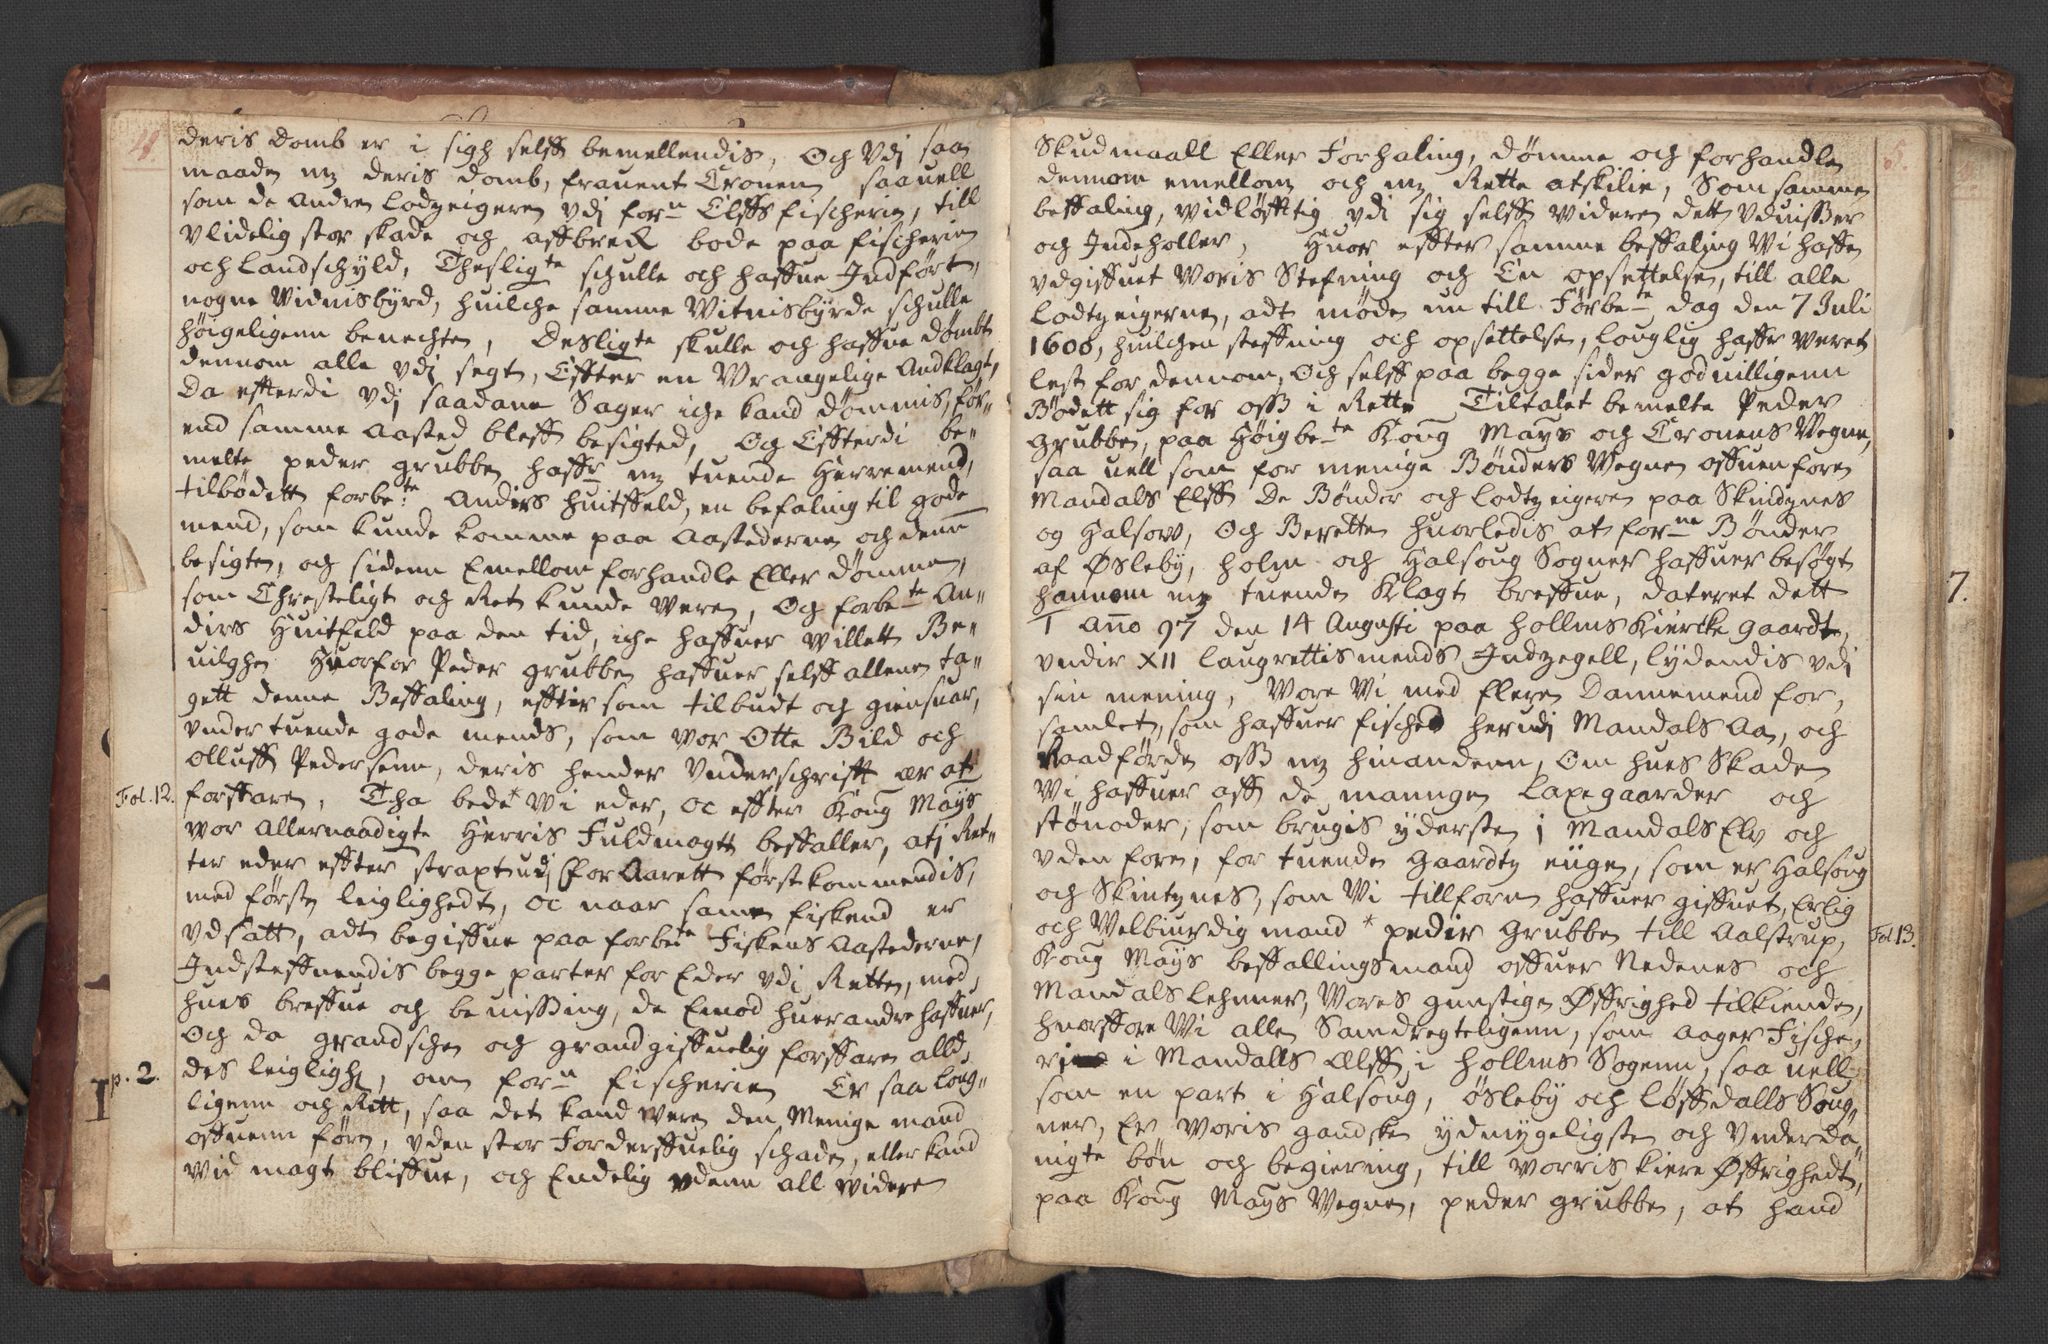 deris Domb er i sigh selff bemellendis, Och Vdj saa
maade mz deris Domb, frauent Cronen saauell
som de Andre lodzeigere Vdj forn Elffs fischerie, till
Vlidelig stor skade och affbreck bode paa fischerie
och landschyld, Thesligte schulle och haffue Indført,
nogne Widnisbyrd, huilche samme Witnisbyrde schulle
høigeligenn benechte, Desligte skulle och haffue dømbt
dennom alle Vdj segt, Effter en Wrangelige Andklage,
Da efterdi Vdj saadane Sager iche kand dømmis, for-
end samme Aasted bleff besigted, Og Effterdi be-
melte peder grubbe haffr mz tuende Herremend,
tilbødett forbete Anders huitffeld, en befaling til gode
mend, som kunde komme paa Aastederne och denn
besigte, och sidenn Emellom forhandle Eller dømme,
som Christeligt och Ret kunde Were, Og forbete An-
dirs Huitfeld paa den tid, iche haffuer Willett Be-
uilghe Huorfor Peder grubbe haffuer selff allene ta-
gett denne Beffaling, effter som tilbudt och giensuar,
Vnder tuende gode mends, som wor Otte Bild och
Olluff Pedersenn, deris hender Vnderschrifft er at
Fol. 12. forffare, Tha bede* Wi eder, oc effter Kong Mays
wor Allernaadigte Herris Fuldmagtt beffaller, atj Ret-
ter eder effter straxt udj for Aarett førstkommendis,
med første leiglighedt, oc naar same fiskend er
Vdsatt, adt begiffue paa forbete Fiskens Aastederne,
Indsteffnendis begge parter for Eder Vdi Rette, med
hues breffue och beuissing, de Emod huerandre haffuer,
Och da grandsche och grandgiffuelig forffare alld
p. 2. des leiglighz, om forn fischerie Er saa loug-
ligenn och Rett, saa det kand were den Menige mand
offuenn føre, vden stor Forderffuelig schade, eller kand
wid magt bliffue, och Endelig vdenn all videre
Skudmaall Eller Forhaling, dømme och forhandle
dennom emellom och mz Rette atskilie, Som samme
beffaling, widløfftig vdi sig selff Widere dett Vduisser
och Indeholler, Huor effter samme beffaling Wi haffe
vdgiffuet Woris Stefning och En opsettelse, till alle
lodtzeigerne, adt møde nu till Forbete dag den 7 Juli
1600, huilchen steffning och opsettelse, louglig haffr veret
lest for dennom, Och selff paa begge sider goduilligenn
Bødett sig for oss i Rette Tiltalet bemelte Peder
Grubbe, paa Høigbete Kong Mays och Cronens Vegne,
saa uell som for menige Bønders Wegne offuenfore
Mandals Elff De Bønder och lodtzeigere paa Skindznes
og Halsow, Och Berette huorledis at forne Bønder
af Øsleby, holm och Halsoug Sogner haffuer besøgt
hannom mz tuende Klage breffue, dateret dett
1 Año 97 den 14 Augusti paa hollms Kiercke gaardt,
vndir XII laugrettismends Indzegell, lydendis vdi
sin mening, Wore Wi med flere Dannemend for-
samlet, som haffuer fisched herudj Mandals Aa, och
Raadførde oss mz hinandenn, Om hues Skade
Wi haffuer aff de mannge laxegaarder och
stønoder, som brugis yderste i Mandals Elv och
vden fore, for tuende Gaardtz eiige, som er Halsoug
och Skintznes, som Wi tillforn haffuer giffuet, Erlig
och Velbiurdig mand * pedir Grubbe till Aalstrup, Fol. 13.
Kong Mays beffallingsmand offuer Nedenes och
Mandals lehnner, Wores gunstige Øffrighed tilkiende,
huorffore Wi alle Samdregteligenn, som aager Fische-
rie i Mandalls Elff, i hollms Sogenn, saa uell
som en part i Halsoug, Øsleby och løffdalls Soug-
ner, Er Woris gandske ydmygeligste och Vnderda-
nigte bøn och begiering, till worris kiere Øffrighedt,
paa Kong Mays Wegne, peder grubbe, at hand
7.